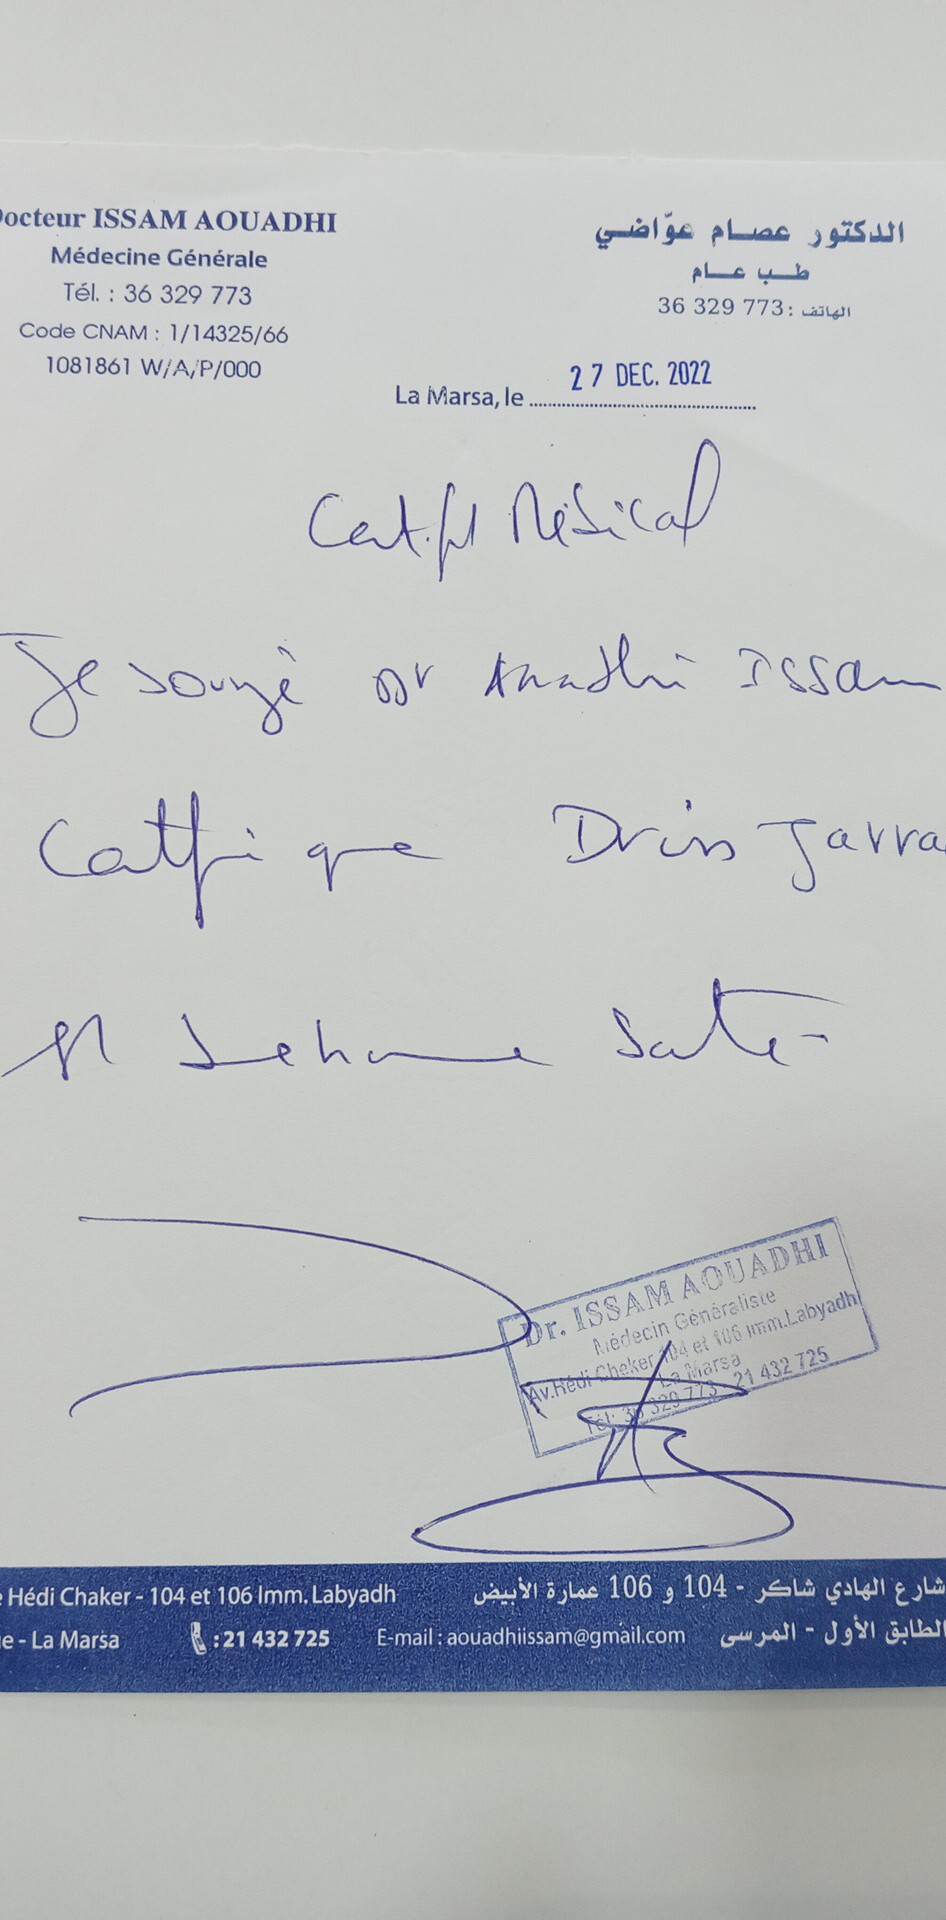 Docteur ISSAM AOUADHI
Médecine Générale
Tél. : 36 329 773
Code CNAM : 1/14325/66
1081861 W/A/P/000
الدكتور عصام عوّاضي
طب عام
الهاتف : 36 329 773
La Marsa, le 27 DEC. 2022
Certifi Médical
Je sousigné Dr Aouadhi Issam
Certifi que Driss Jarra
de bonne Santé
Dr. ISSAM AOUADHI
Médecin Généraliste
Av.Hédi Cheker 104 et 106 Imm.Labyadh
La Marsa
Tél: 36 329 773 - 21 432 725
Hédi Chaker - 104 et 106 Imm. Labyadh
شارع الهادي شاكر - 104 و 106 عمارة الأبيض
e - La Marsa
: 21 432 725
E-mail : aouadhiissam@gmail.com
الطابق الأول - المرسى